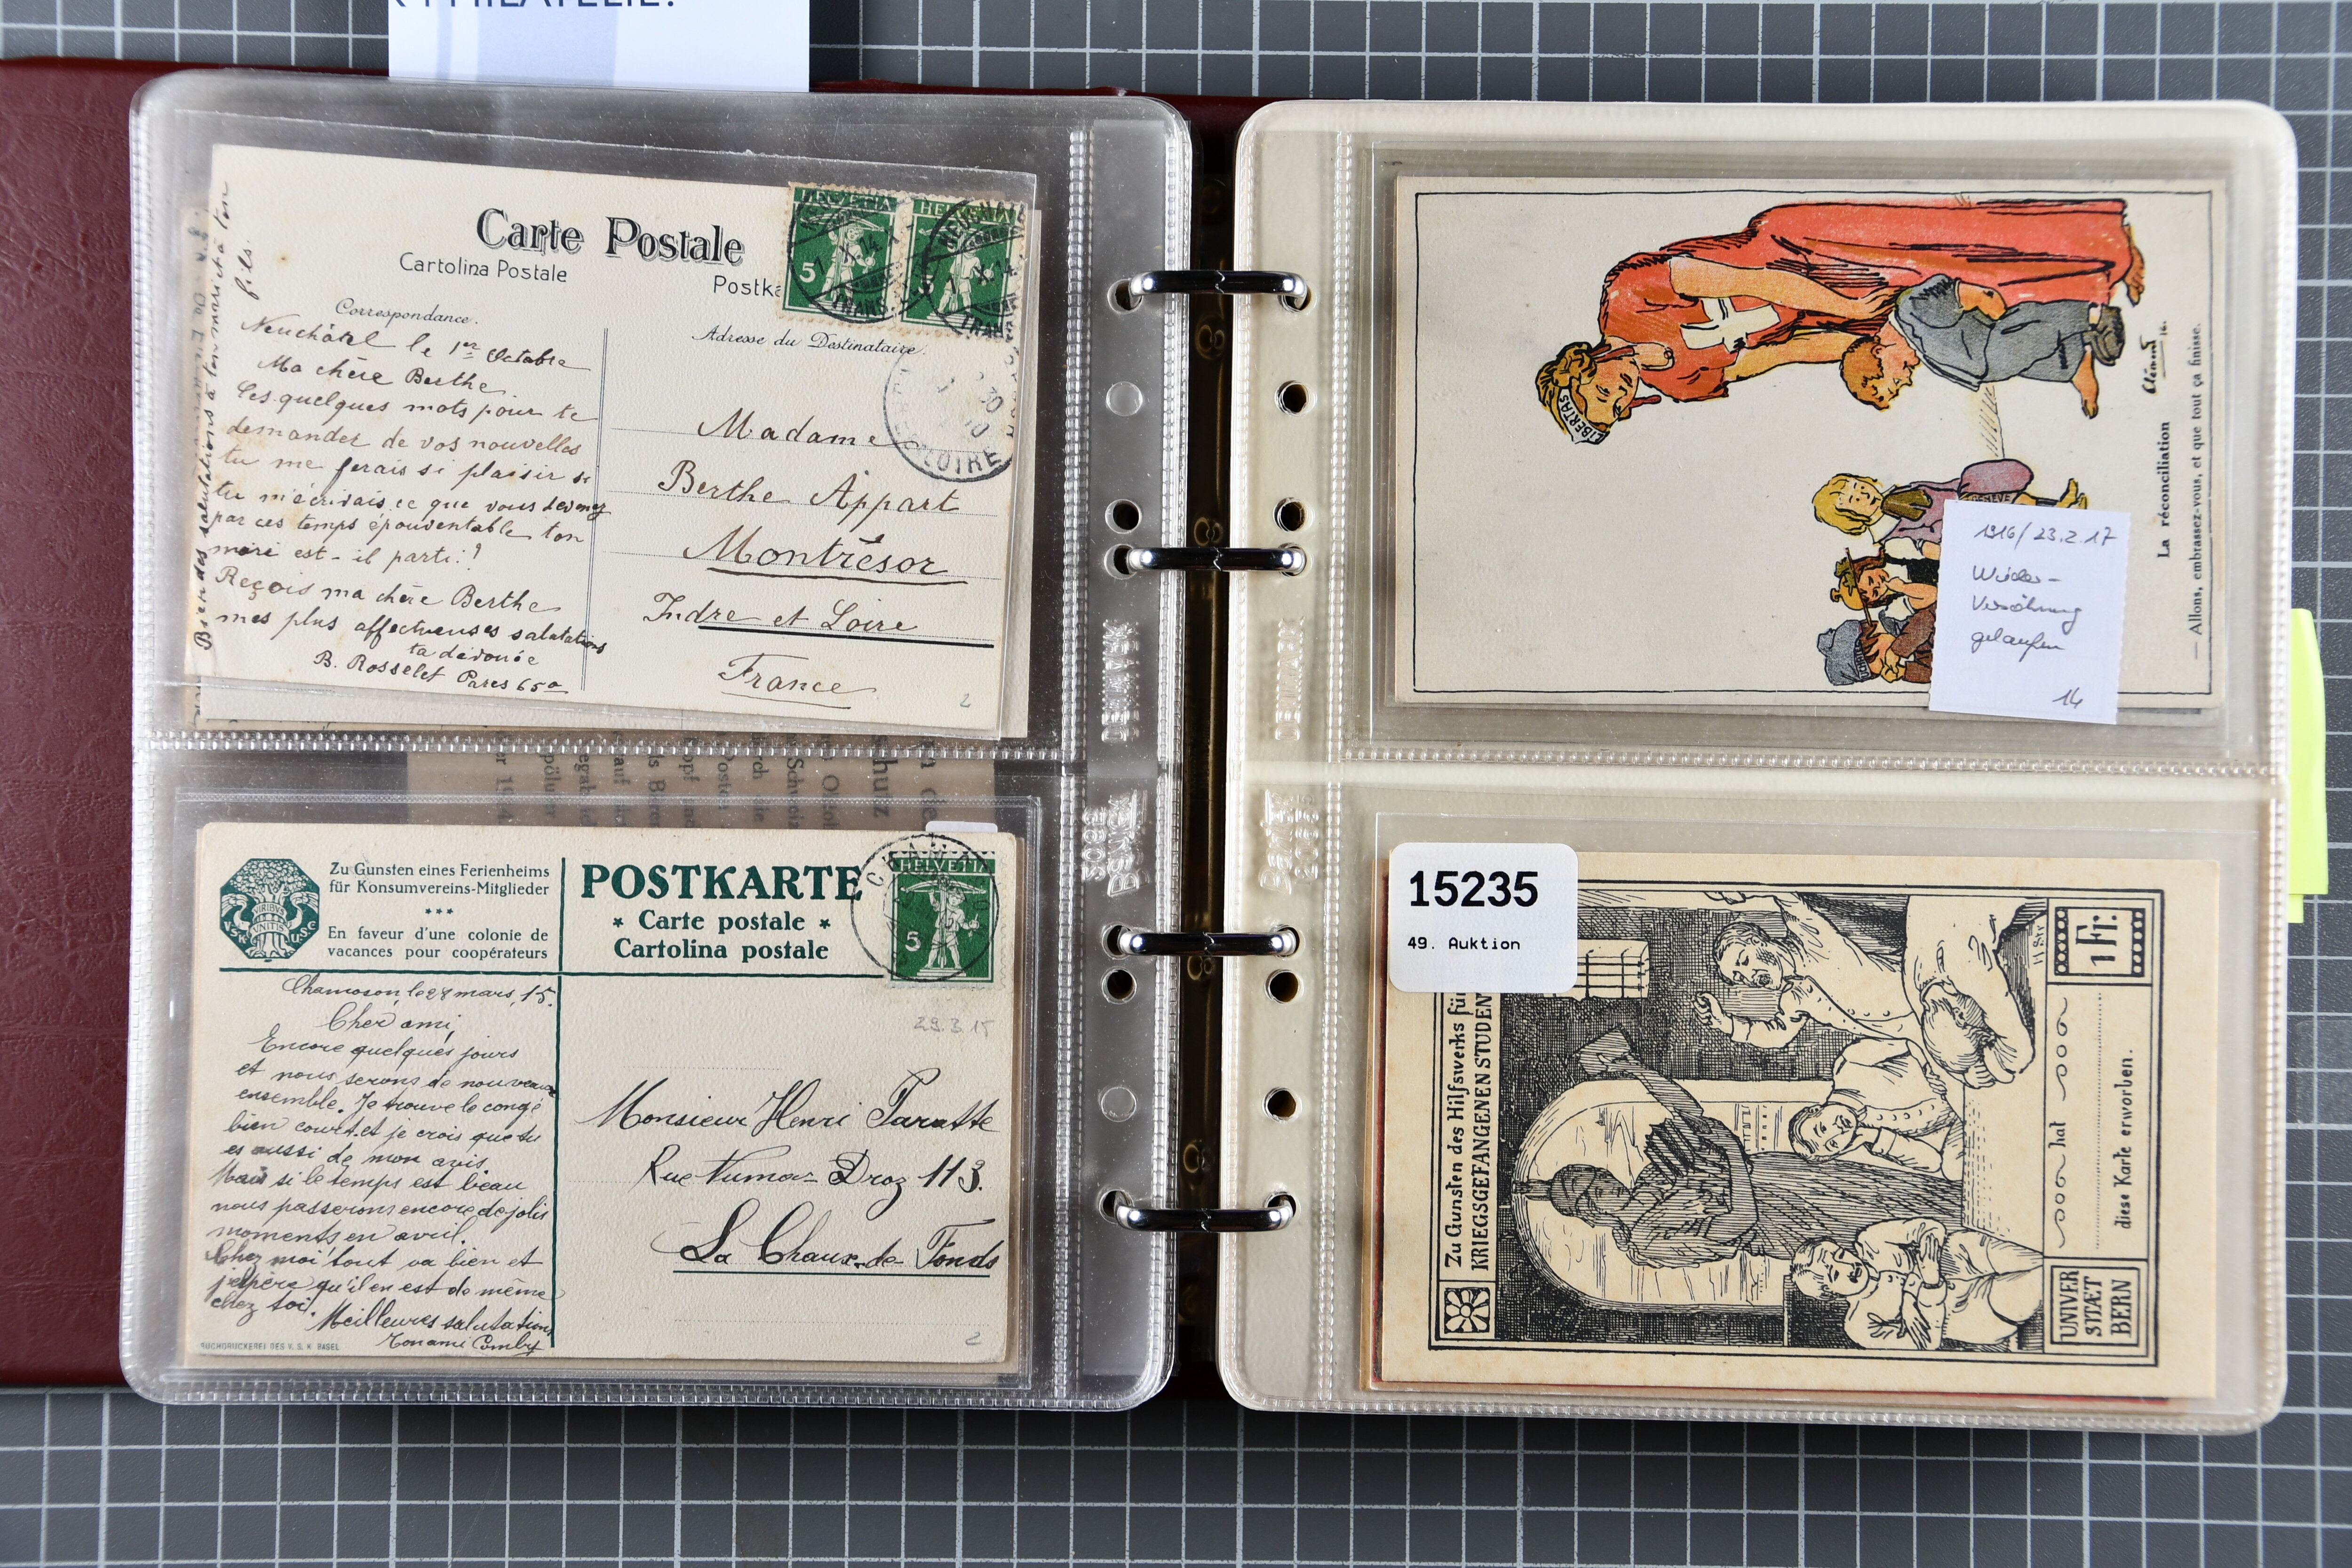 PHILATELIE!
Carte Postale
Cartolina Postale
Postka
HELVETIA
HELVETIA
5
Correspondance.
Adresse du Destinataire.
Neuchâtel le 1er Octobre
Ma chère Berthe
Ces quelques mots pour te
demander de vos nouvelles
tu me ferais si plaisir si
tu m'écrivais ce que vous devenez
par ces temps épouventable ton
mari est-il parti!?
Reçois ma chère Berthe
mes plus affectueuses salutations
ta dévouée
B. Rosselet Parcs 65a
Bien des salutations à ton mari et à ton
fils.
Madame
Berthe Appart
Montrésor
Indre et Loire
France
2
Zu Gunsten eines Ferienheims
für Konsumvereins-Mitglieder
***
En faveur d'une colonie de
vacances pour coopérateurs
VIRIBUS
UNITIS
V.S.K.
U.S.C.
POSTKARTE
* Carte postale *
Cartolina postale
HELVETIA
5
29.3.15
Chamoson, le 28 mars, 15.
Cher ami,
Encore quelques jours
et nous serons de nouveau
ensemble. Je trouve le congé
bien court et je crois que tu
es aussi de mon avis.
Mais si le temps est beau
nous passerons encore de jolis
moments en avril.
Chez moi tout va bien et
j'espère qu'il en est de même
chez toi.
Meilleures salutations
Ton ami Comby
Monsieur Henri Paratte
Rue Numa-Droz 113.
La Chaux-de-Fonds
BUCHDRUCKEREI DES V. S. K. BASEL
2
LIBERTAS
GENÈVE
Clément 16.
La réconciliation
— Allons, embrassez-vous, et que tout ça finisse.
1916/23.2.17
Wieder-
Versöhnung
gelaufen
14
15235
49. Auktion
Zu Gunsten des Hilfswerks für
KRIEGSGEFANGENEN STUDENT
1 Fr.
hat
diese Karte erworben.
UNIVER
SITÆT
BERN